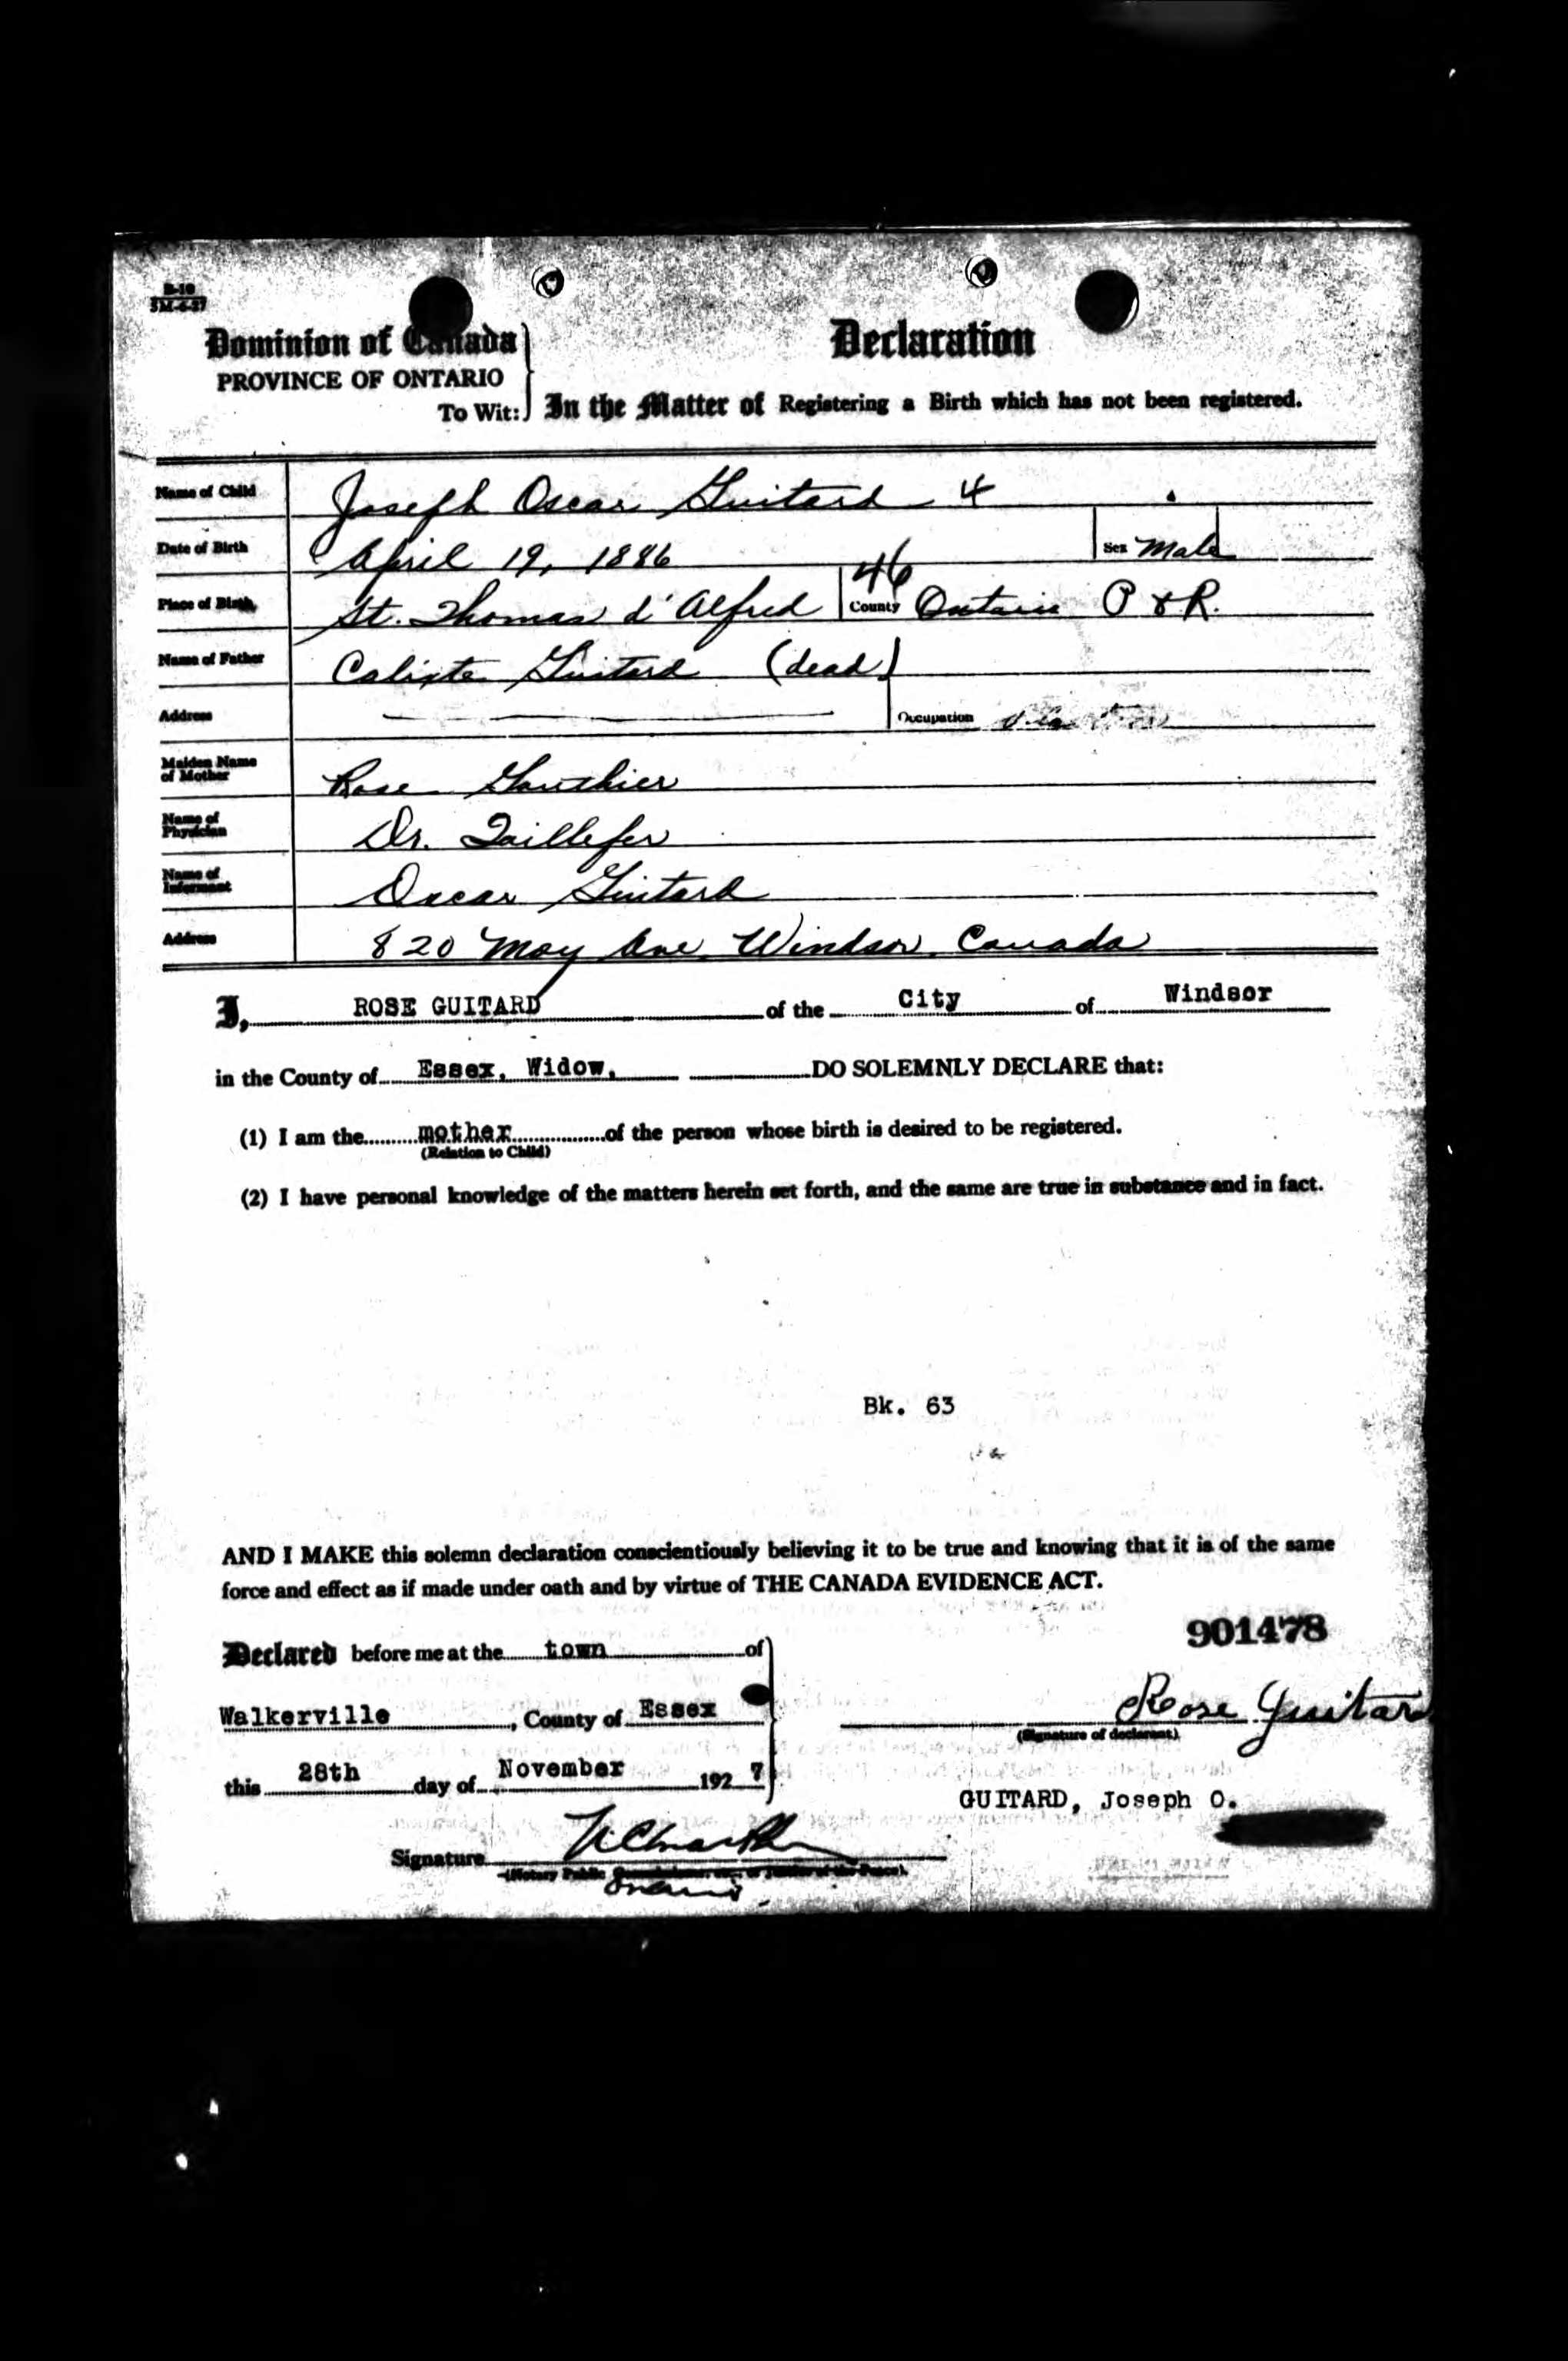 B-10
5M-6-27
Dominion of Canada
PROVINCE OF ONTARIO
To Wit:
Declaration
In the Matter of Registering a Birth which has not been registered.
Name of Child Joseph Oscar Guitard 4
Date of Birth April 19, 1886 Sex Male
46
Place of Birth, St. Thomas d'Alfred County Ontario P & R.
Name of Father Calixte Guitard (dead)
Address Occupation
Maiden Name of Mother Rose Gauthier
Name of Physician Dr. Taillefer
Name of Informant Oscar Guitard
Address 820 Moy Ave. Windsor. Canada
I, ROSE GUITARD of the City of Windsor
in the County of Essex, Widow, DO SOLEMNLY DECLARE that:
(1) I am the mother of the person whose birth is desired to be registered.
(Relation to Child)
(2) I have personal knowledge of the matters herein set forth, and the same are true in substance and in fact.
Bk. 63
AND I MAKE this solemn declaration conscientiously believing it to be true and knowing that it is of the same
force and effect as if made under oath and by virtue of THE CANADA EVIDENCE ACT.
901478
Declared before me at the town of
Walkerville, County of Essex
Rose Guitard
(Signature of declarant).
this 28th day of November 1927
GUITARD, Joseph O.
Signature
(Notary Public, Commissioner, etc., or Justice of the Peace).
Ontario